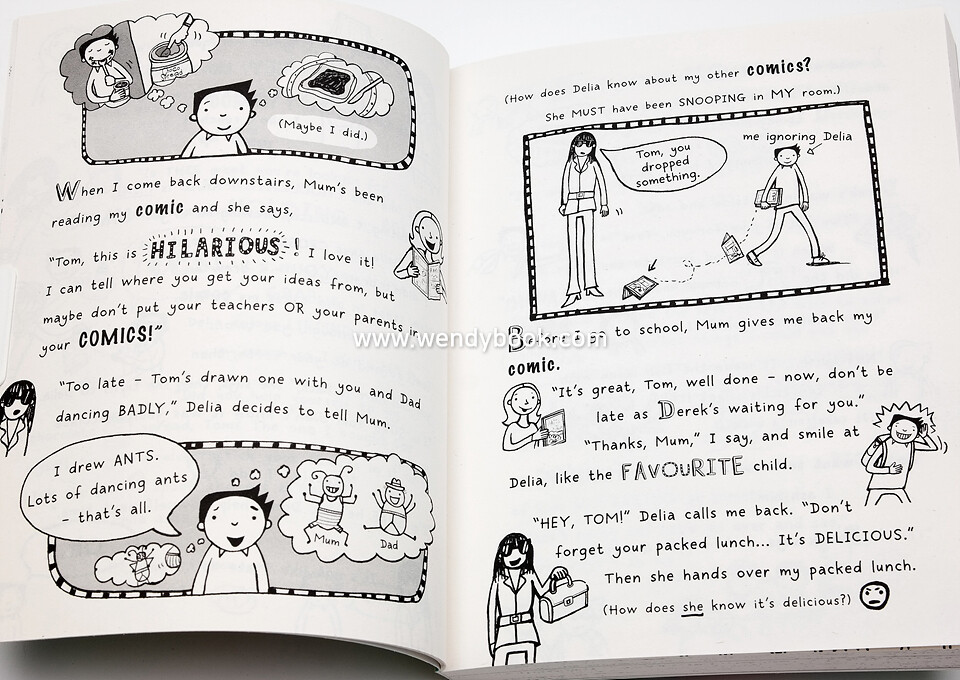 (Maybe I did.)
When I come back downstairs, Mum's been
reading my comic and she says,
"Tom, this is HILARIOUS! I love it!
I can tell where you get your ideas from, but
maybe don't put your teachers OR your parents in
your COMICS!"
"Too late – Tom's drawn one with you and Dad
dancing BADLY," Delia decides to tell Mum.
I drew ANTS.
Lots of dancing ants
– that's all.
Mum
Dad
(How does Delia know about my other comics?
She MUST have been SNOOPING in MY room.)
me ignoring Delia
Tom, you
dropped
something.
Before I go to school, Mum gives me back my
comic.
"It's great, Tom, well done – now, don't be
late as Derek's waiting for you."
"Thanks, Mum," I say, and smile at
Delia, like the FAVOURITE child.
"HEY, TOM!" Delia calls me back. "Don't
forget your packed lunch... It's DELICIOUS."
Then she hands over my packed lunch.
(How does she know it's delicious?)
www.wendybook.com